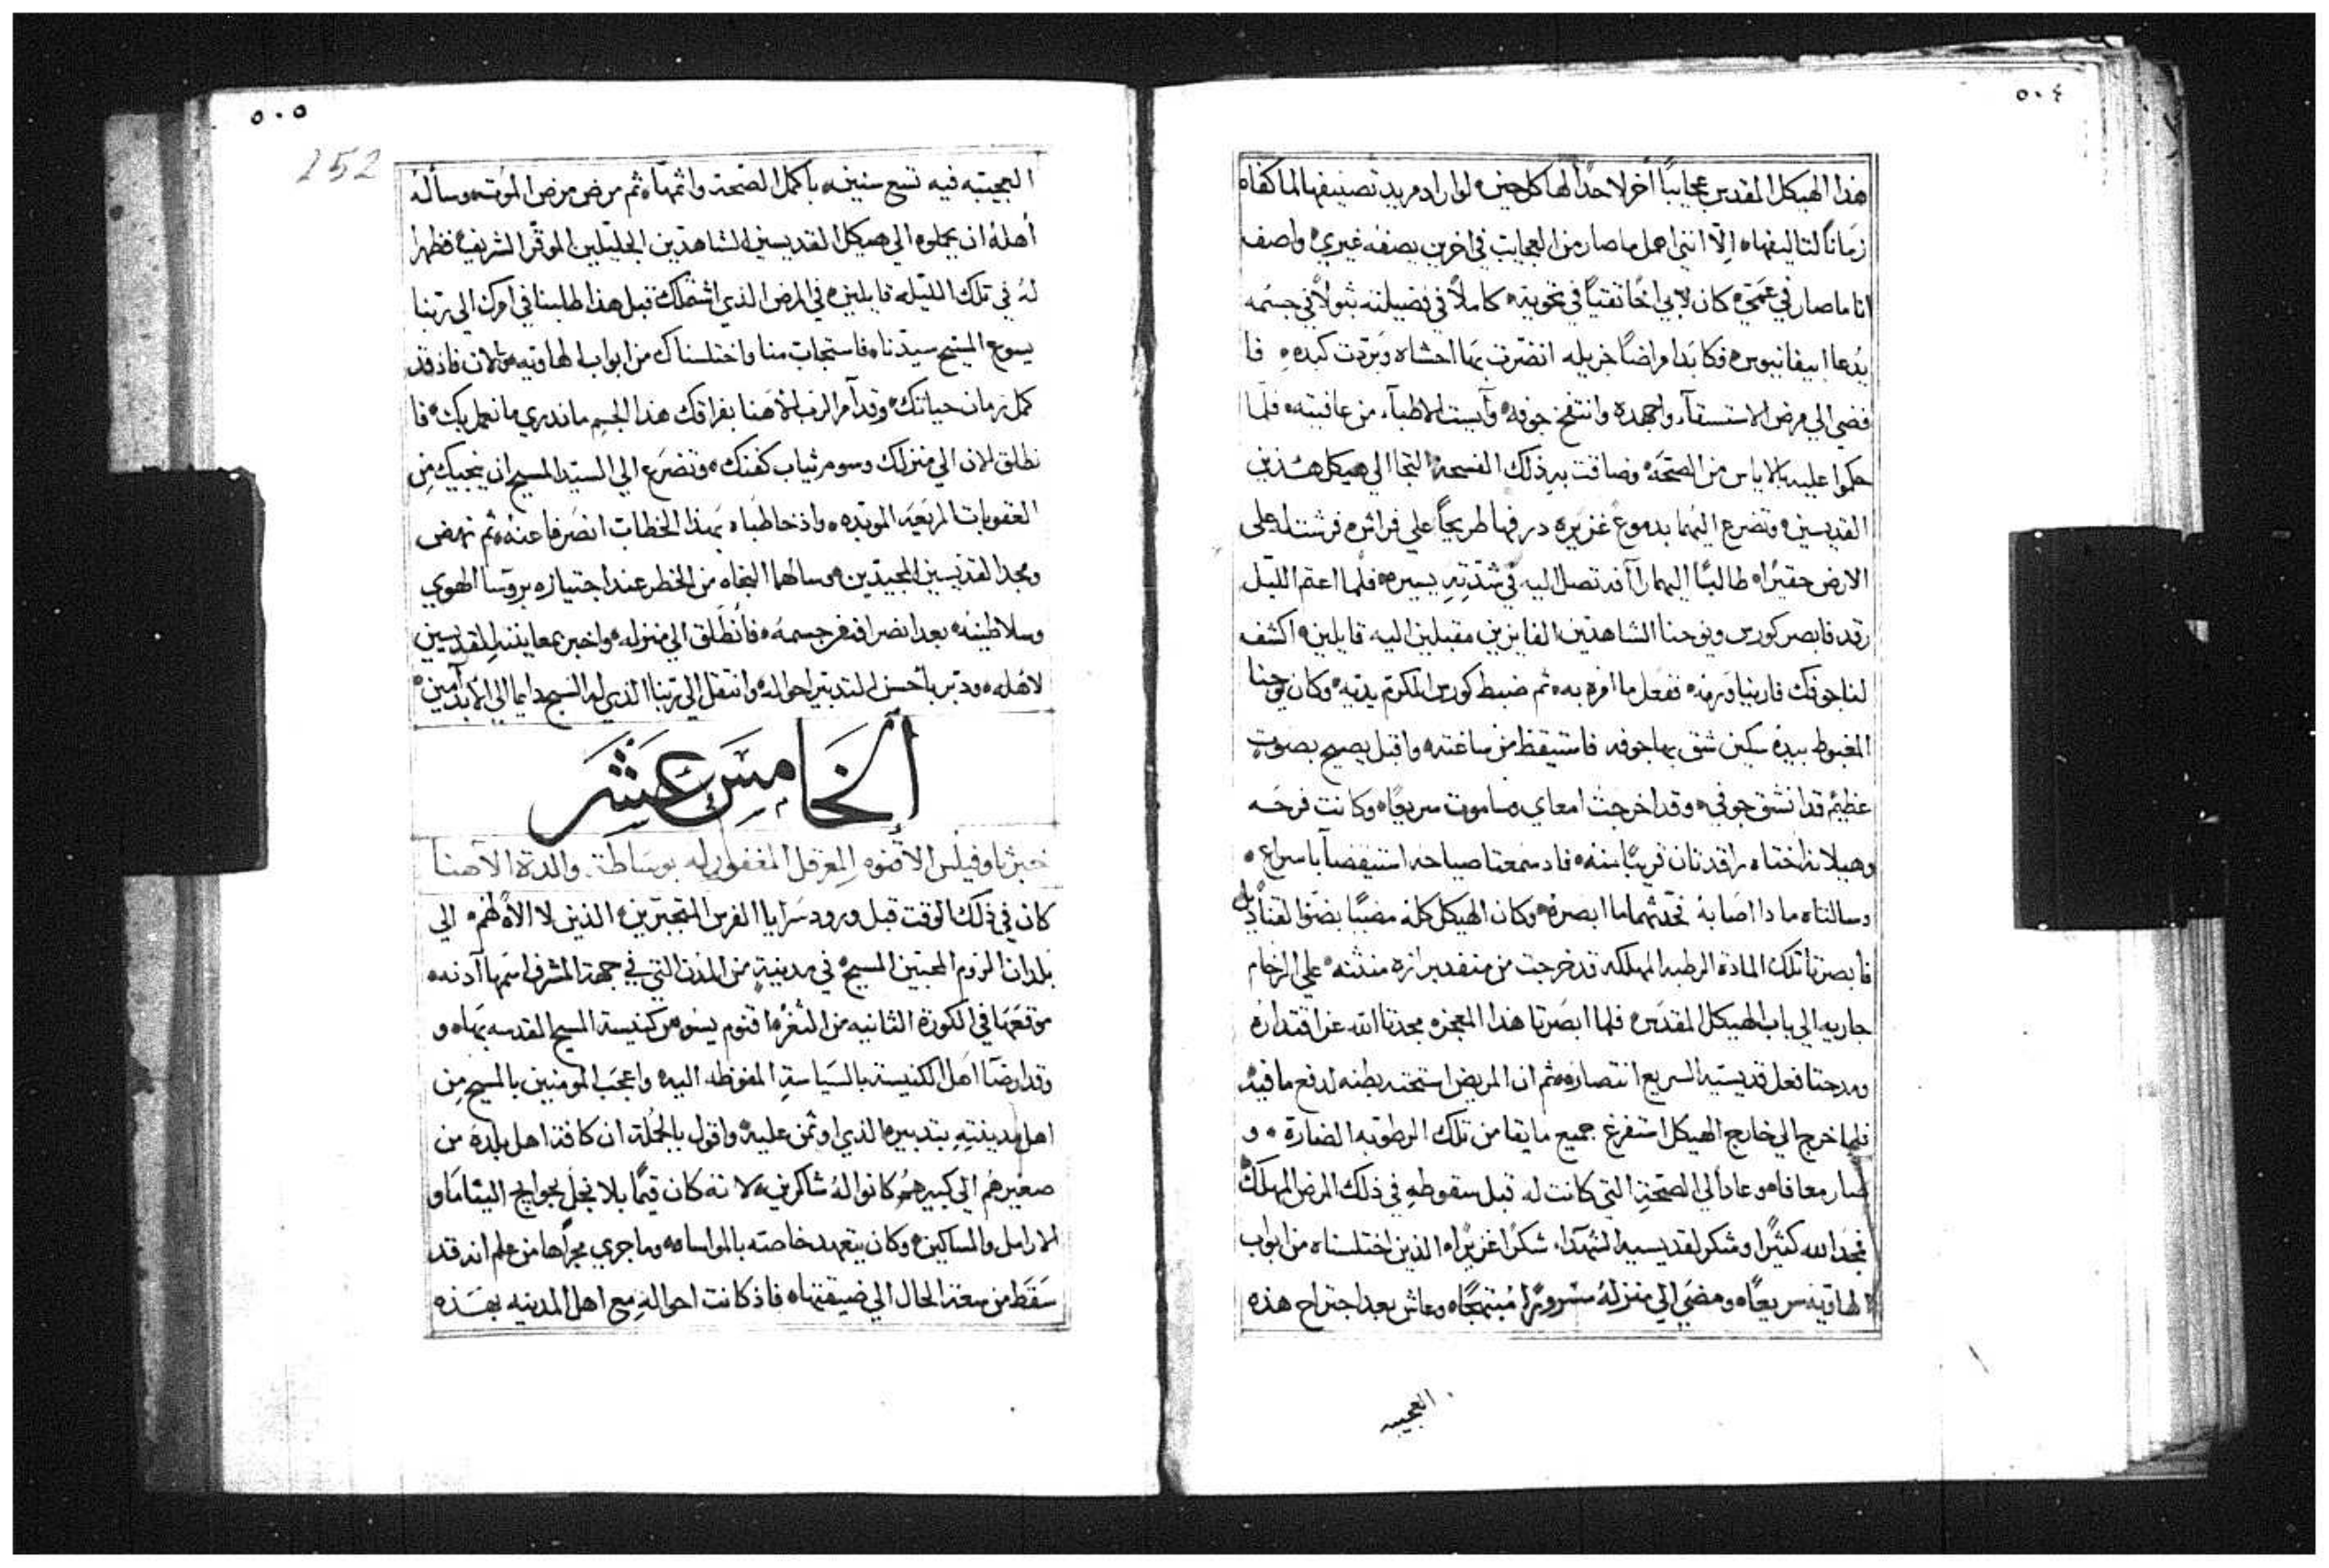 ٥٠٤
هذا الهيكل المقدس عجايبًا أخر لاحدًا لها كل حين لو اراد مريد تصنيفها لما كفاه
زمانًا لتاليفهاه إلّا انني اهمل ما صار من العجايب في اخرين يصفه غيري واصف
انا ما صار في عمتي كان لابي اخًا تقيًا في نحويته كاملاً في فضيلته شولاً في جسمه
يُدعا ابيفانيوس فكابد امراضًا جزيله انضرت بها احشاه وبردت كبده فا
فضي الي مرض الاستسقآ واجهده وانتفخ جوفه وآيست الاطبآ من عافيته فلما
حكموا عليه بالاياس من الصحّة وضاقت به ذلك الفسحة التجا الي هيكل هذين
القديسين وتضرع اليهما بدموع غزيره درفها طريحًا علي فراش فرشت له علي
الارض حقيرًاه طالبًا اليهما رآفه تصل اليه في شدّتهِ يسيره فلما اعتم الليل
رقد فابصر كورس ويوحنا الشاهدين الفايزين مقبلين اليه قايلين اكشف
لنا جوفك فارينا ورمه ففعل ما امره به ثم ضبط كورس المكرّم يديه وكان يوحنا
المغبوط بيده سكين شق بها جوفه فاستيقظ من ساعته واقبل يصيح بصوتٍ
عظيم قد انشق جوفي وقد اخرجت امعاي وساموت سريعًاه وكانت فرحه
وهيلانه اختاه راقدتان قريبًا منه فاد سمعتا صياحه استيقضآ باسراع
وسالتاه ما دا اصابهُ فحدثهما ما ابصره وكان الهيكل كله مضيًا بضوّ القناديل
فابصرتا تلك المادة الرطبه المهلكه قد خرجت من منفد برازه منتنه علي الرخام
جاريه الي باب الهيكل المقدس فلما ابصرتا هذا المعجزه مجدتا الله عز اقتداره
ومدحتا فعل قديسيه السريع انتصاره ثم ان المريض استحته بطنه لدفع ما فيه
فلما خرج الي خارج الهيكل استفرغ جميع ما بقا من تلك الرطوبه الضارة و
صار معافاه وعاد الي الصحّةِ التي كانت له قبل سقوطهِ في ذلك المرض المهلك
فمجد الله كثيرًا وشكر لقديسيه الشهدآ شكرًا غزيرًاه الذين اختلسناه من ابواب
الهاويه سريعًاه ومضي الي منزلهُ مسرورًا مُبتهجًاه وعاش بعد اجتراح هذه
العجيبه
٥٠٥
252
العجيبه فيه تسع سنين باكمل الصّحة واتمهاه ثم مرض مرض الموت وسالهُ
أهلهُ ان يحملوه الي هيكل القديسين الشاهدين الجليلين الموقّر الشريف فظهرا
لهُ في تلك الليله قايلين في المرض الذي اشتملك قبل هذا طلبنا في امرك الي ربنا
يسوع المسيح سيدناه فاستجاب منا واختلسناك من ابواب الهاويه والان فاذ قد
كمل زمان حياتك وقد آمر الرب الاهنا بفراقك هذا الجسم ما ندري ما نعمل بك فا
نطلق الان الي منزلك وسوم ثياب كفنك وتضرّع الي السيّد المسيح ان ينجيك من
العقوبات المريعه الموبده واذ خاطباه بهذا الخطاب انصرفا عنه ثم نهض
ومجد القديسين المجيدين وسالهما النجاه من الخطر عند اجتيازه بروسا الهوي
وسلاطينهُ بعد انصرافه من جسمهُ فأنطلق الي منزله واخبر بمعاينتهِ للقديسين
لاهله ودبر باحسن التدبير احواله وانتقل الي ربنا الذي له السبح دايما الي الابد آمين
اَلْخَامِسَ عَشَرَ
خبر ثاوفيلس الاقنوم المعزقل المغفور له بوساطة والدة الاهنا
كان في ذلك الوقت قبل ورود سرايا الفرس المتجبرين الذين لا الاه لهم الي
بلدان الروم المحبين المسيح في مدينةٍ من المدن التي في جهة المشرق اسمها آدنه
موقعها في الكورة الثانيه من الثغر اقنوم يسوس كنيسة المسيح المقدسه بهاه و
وقد ارضآ اهل الكنيسة بالسياسةِ المفوظه اليه واعجب المومنين بالمسيح من
اهل مدينتهِ بتدبيره الذي اوتمن عليه واقول بالجُلة ان كافة اهل بلده من
صغيرهم الي كبيرهم كانوا لهُ شاكرين لانه كان قيمًا بلا بخل بحوايج اليتاما و
الارامل والمساكين وكان يتعهد خاصته بالمواساه وما جري مجراها من علم انه قد
سقط من سعة الحال الي ضيقتهاه فاذ كانت احواله مع اهل المدينه بهذه